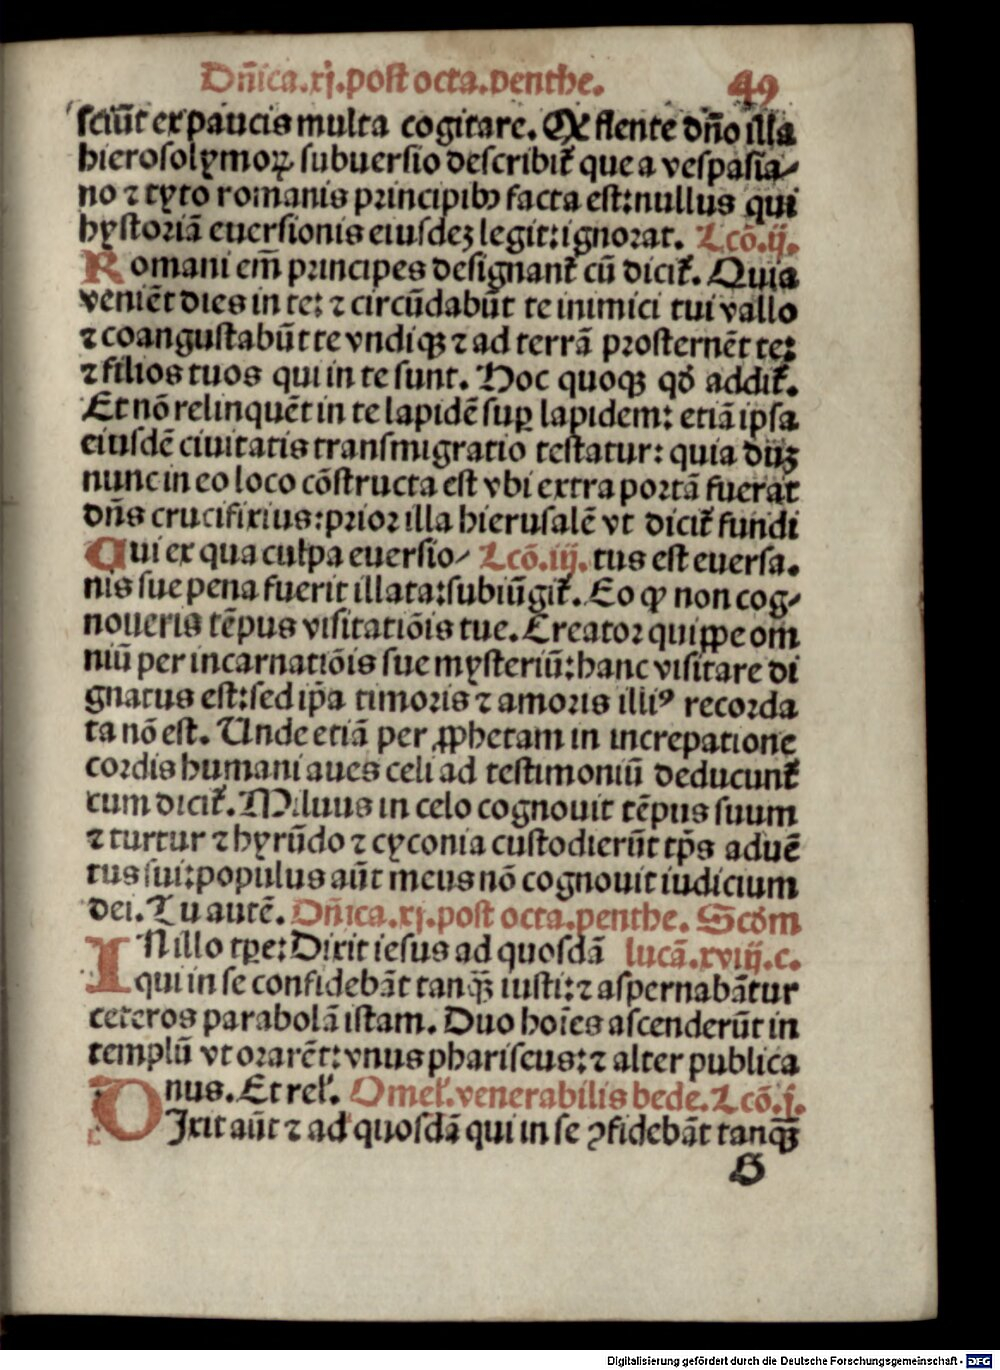 Dñica.xj.post octa.penthe. 49
sciūt ex paucis multa cogitare. Qꝫ flente dño illa
hierosolymoꝝ subuersio describit᷑ que a vespasia⸗
no ⁊ tyto romanis principibꝰ facta est:nullus qui
hystoriā euersionis eiusdeꝫ legit:ignorat. Lcō.ij.
Romani em̄ principes designant᷑ cū dicit᷑. Quia
veniēt dies in te: ⁊ circūdabūt te inimici tui vallo
⁊ coangustabūt te vndiqꝫ ⁊ ad terrā prosternēt te:
⁊ filios tuos qui in te sunt. Hoc quoqꝫ qd̓ addit᷑.
Et nō relinquēt in te lapidē suꝑ lapidem: etiā ipsa
eiusdē ciuitatis transmigratio testatur: quia dūꝫ
nunc in eo loco cōstructa est vbi extra portā fuerat
dñs crucifixius:prior illa hierusalē vt dicit᷑ fundi
Qui ex qua culpa euersio⸗ Lcō.iij. tus est euersa.
nis sue pena fuerit illata:subiūgit᷑. Eo ꝙ non cog⸗
noueris tēpus visitatiōis tue. Creator quippe om
niū per incarnatiōis sue mysteriū:hanc visitare di
gnatus est:sed ip̄a timoris ⁊ amoris illiꝰ recorda
ta nō est. Unde etiā per ꝓphetam in increpatione
cordis humani aues celi ad testimoniū deducunt᷑
cum dicit᷑. Miluus in celo cognouit tēpus suum
⁊ turtur ⁊ hyrūdo ⁊ cyconia custodierūt tp̄s aduē
tus sui:populus aūt meus nō cognouit iudicium
dei. Tu autē. Dñica.xj.post octa.penthe. Scd̓m
IN illo tꝑe: Dixit iesus ad quosdā lucā.xviij.c.
qui in se confidebāt tanqꝫ̄ iusti:⁊ aspernabātur
ceteros parabolā istam. Duo hoīes ascenderūt in
templū vt orarēt:vnus phariseus:⁊ alter publica
nus. Et rel̓. Omel̓.venerabilis bede. Lcō.j.
DIxit aūt ⁊ ad quosdā qui in se ꝯfidebāt tanqꝫ̄
G
Digitalisierung gefördert durch die Deutsche Forschungsgemeinschaft - DFG